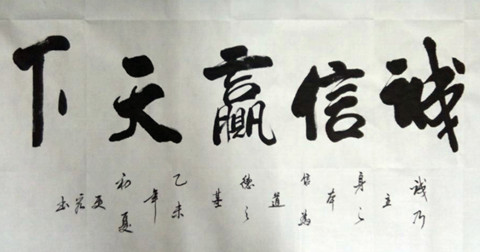 誠信贏天下
誠乃立身之本信為道德之基乙未年初夏